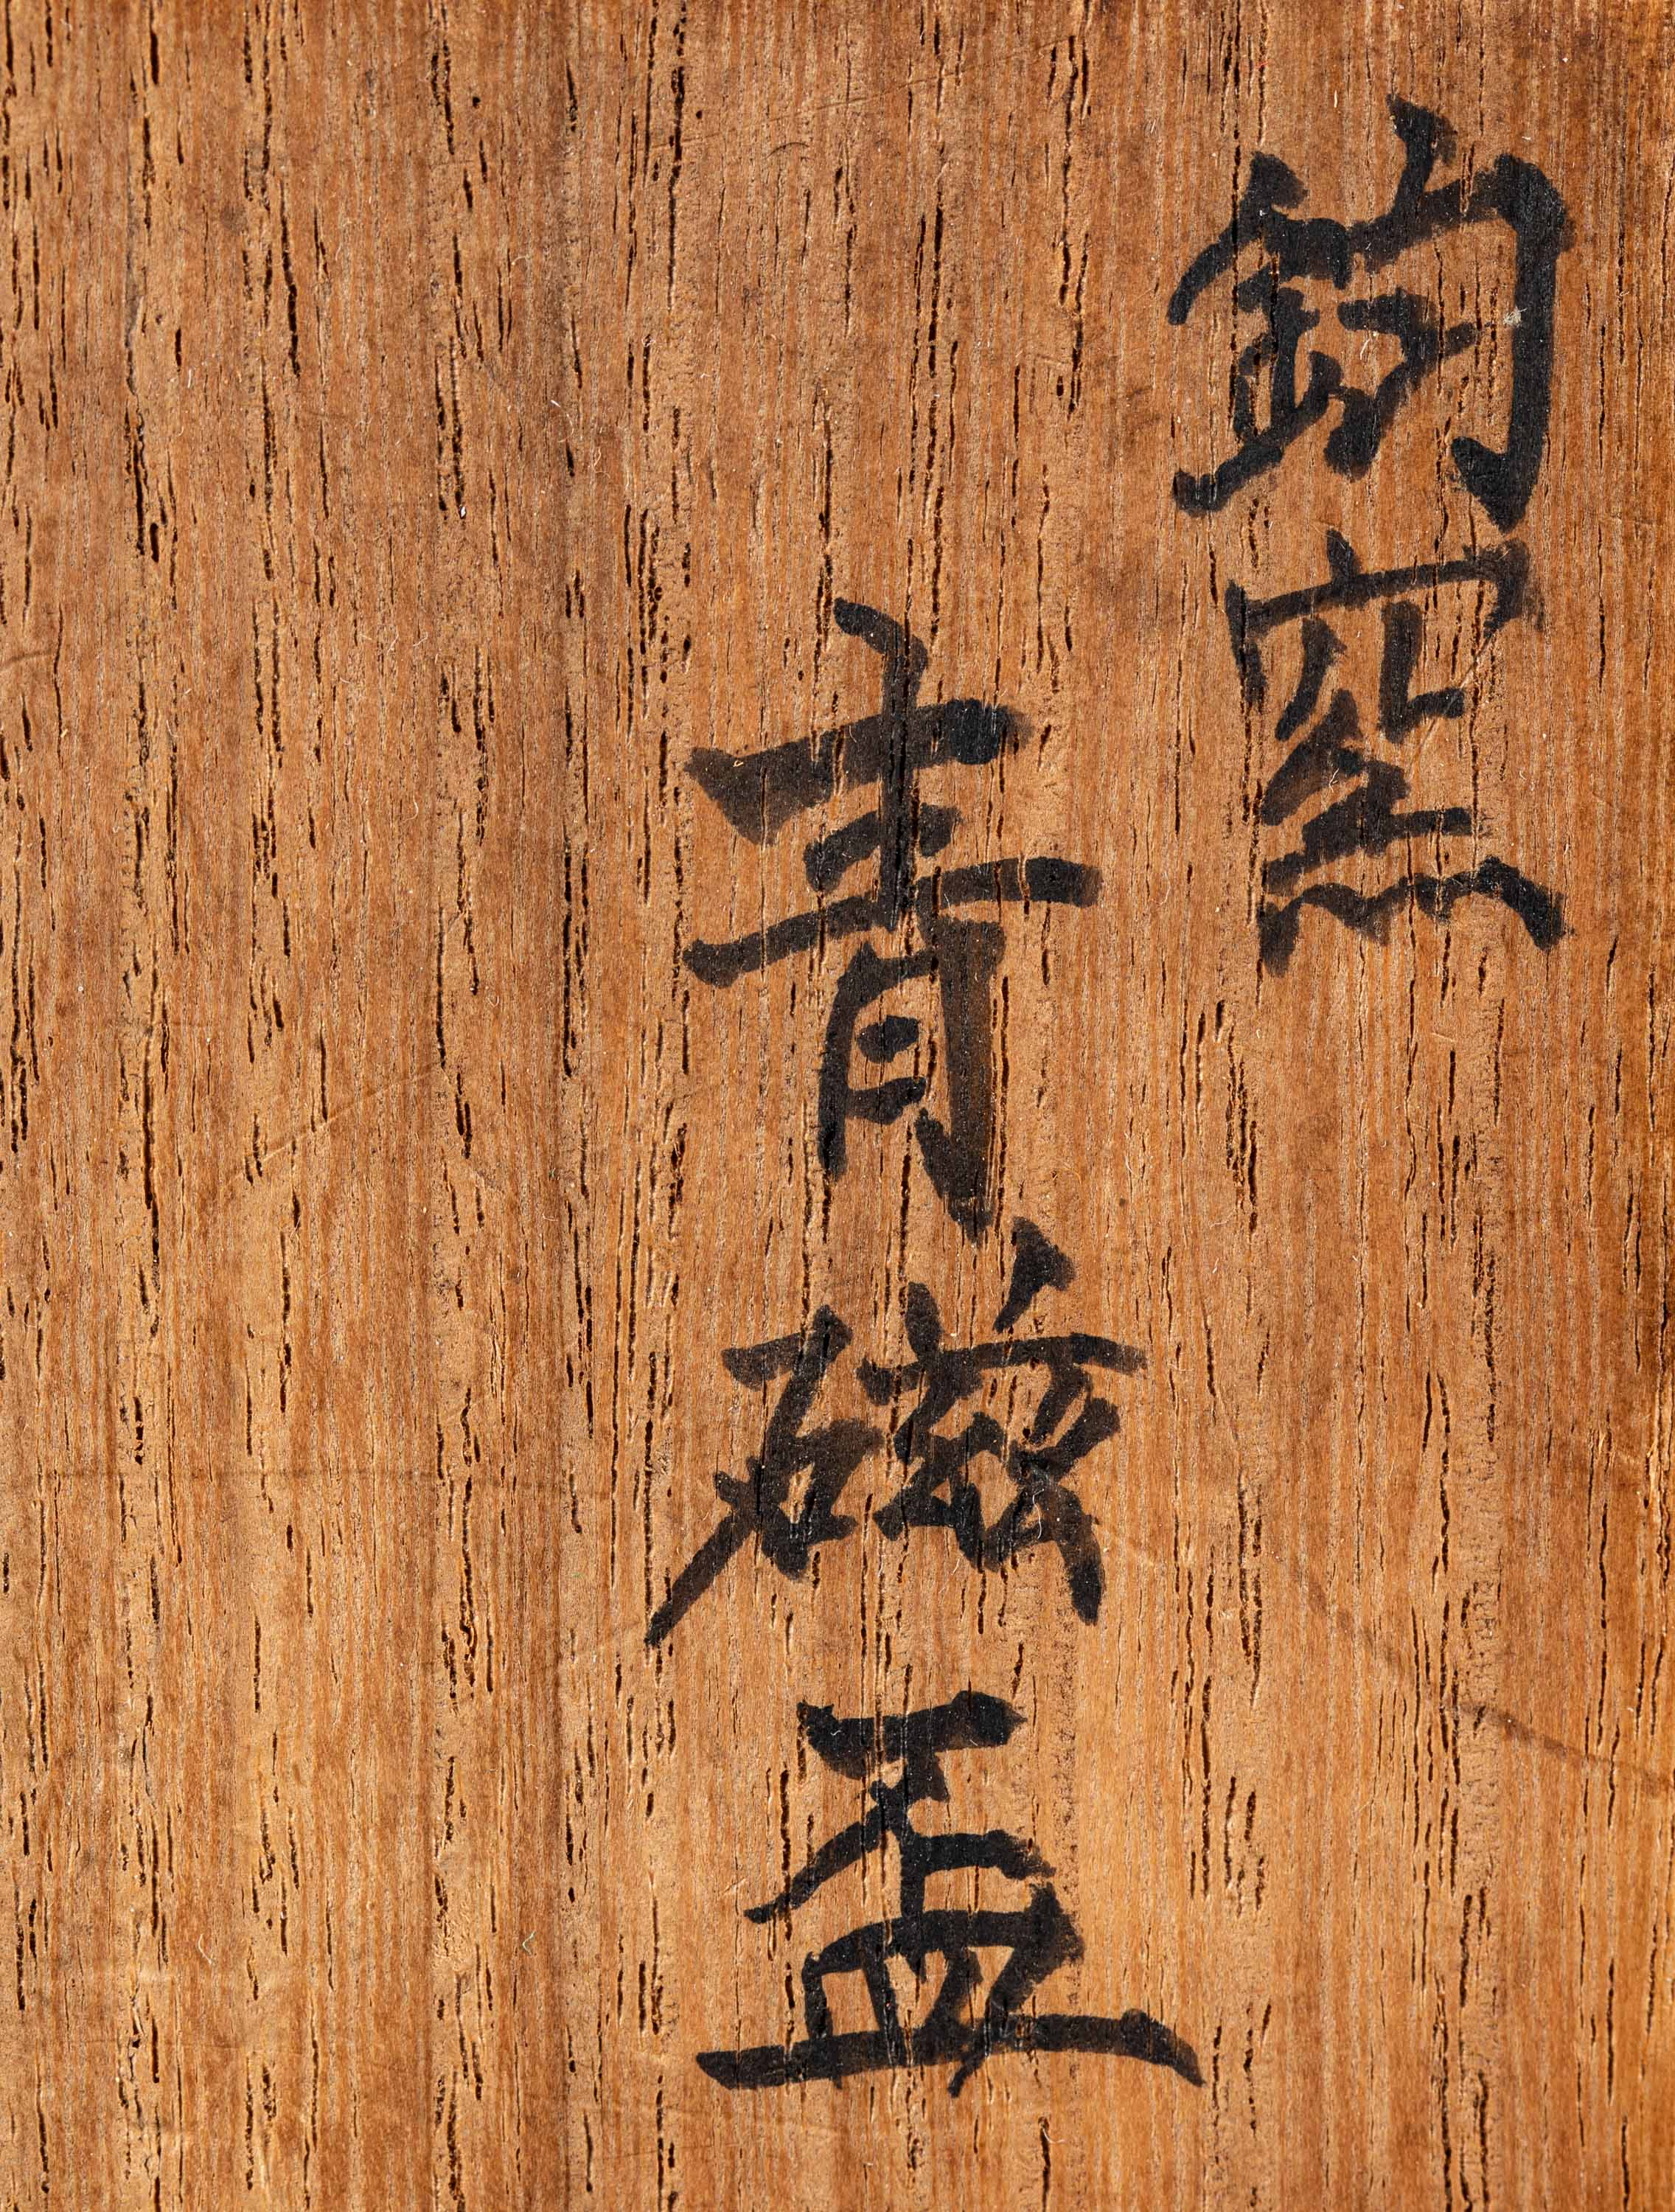 鈞窯
青磁盃